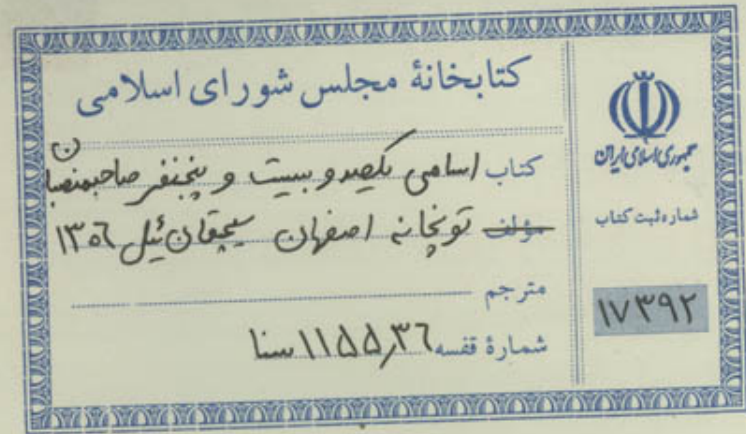 کتابخانهٔ مجلس شورای اسلامی
کتاب اسامی یکصد و بیست و پنجنفر صاحبمنصبان
مؤلف توپخانه اصفهان سیچقان ئیل ۱۳۰۶
مترجم
شمارهٔ قفسه ۱۱۵۵٫۳۶ سنا
جمهوری اسلامی ایران
شماره ثبت کتاب
۱۷۳۹۲